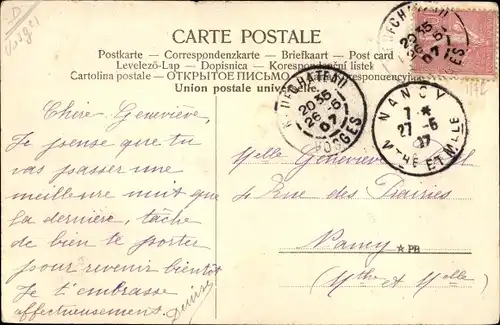 D
Vosges
CARTE POSTALE
Postkarte — Correspondenzkarte — Briefkaart — Post card
Levelező-Lap — Dopisnica — Korespondenční lístek
Cartolina postale — ОТКРЫТОЕ ПИСЬМО
Union postale universelle.
NEUFCHATEAU
20 35
26 - 5
07
VOSGES
NANCY
7 *
27 - 5
07
MTHE ET MLLE
Chère Geneviève,
Je pense que tu
vas passer une
meilleure nuit que
la dernière, tâche
de bien te porter
pour revenir bientôt
Je t'embrasse
affectueusement.
Denise
Melle Geneviève
4 Rue des Prairies
Nancy
★ PB
(Mthe et Melle)